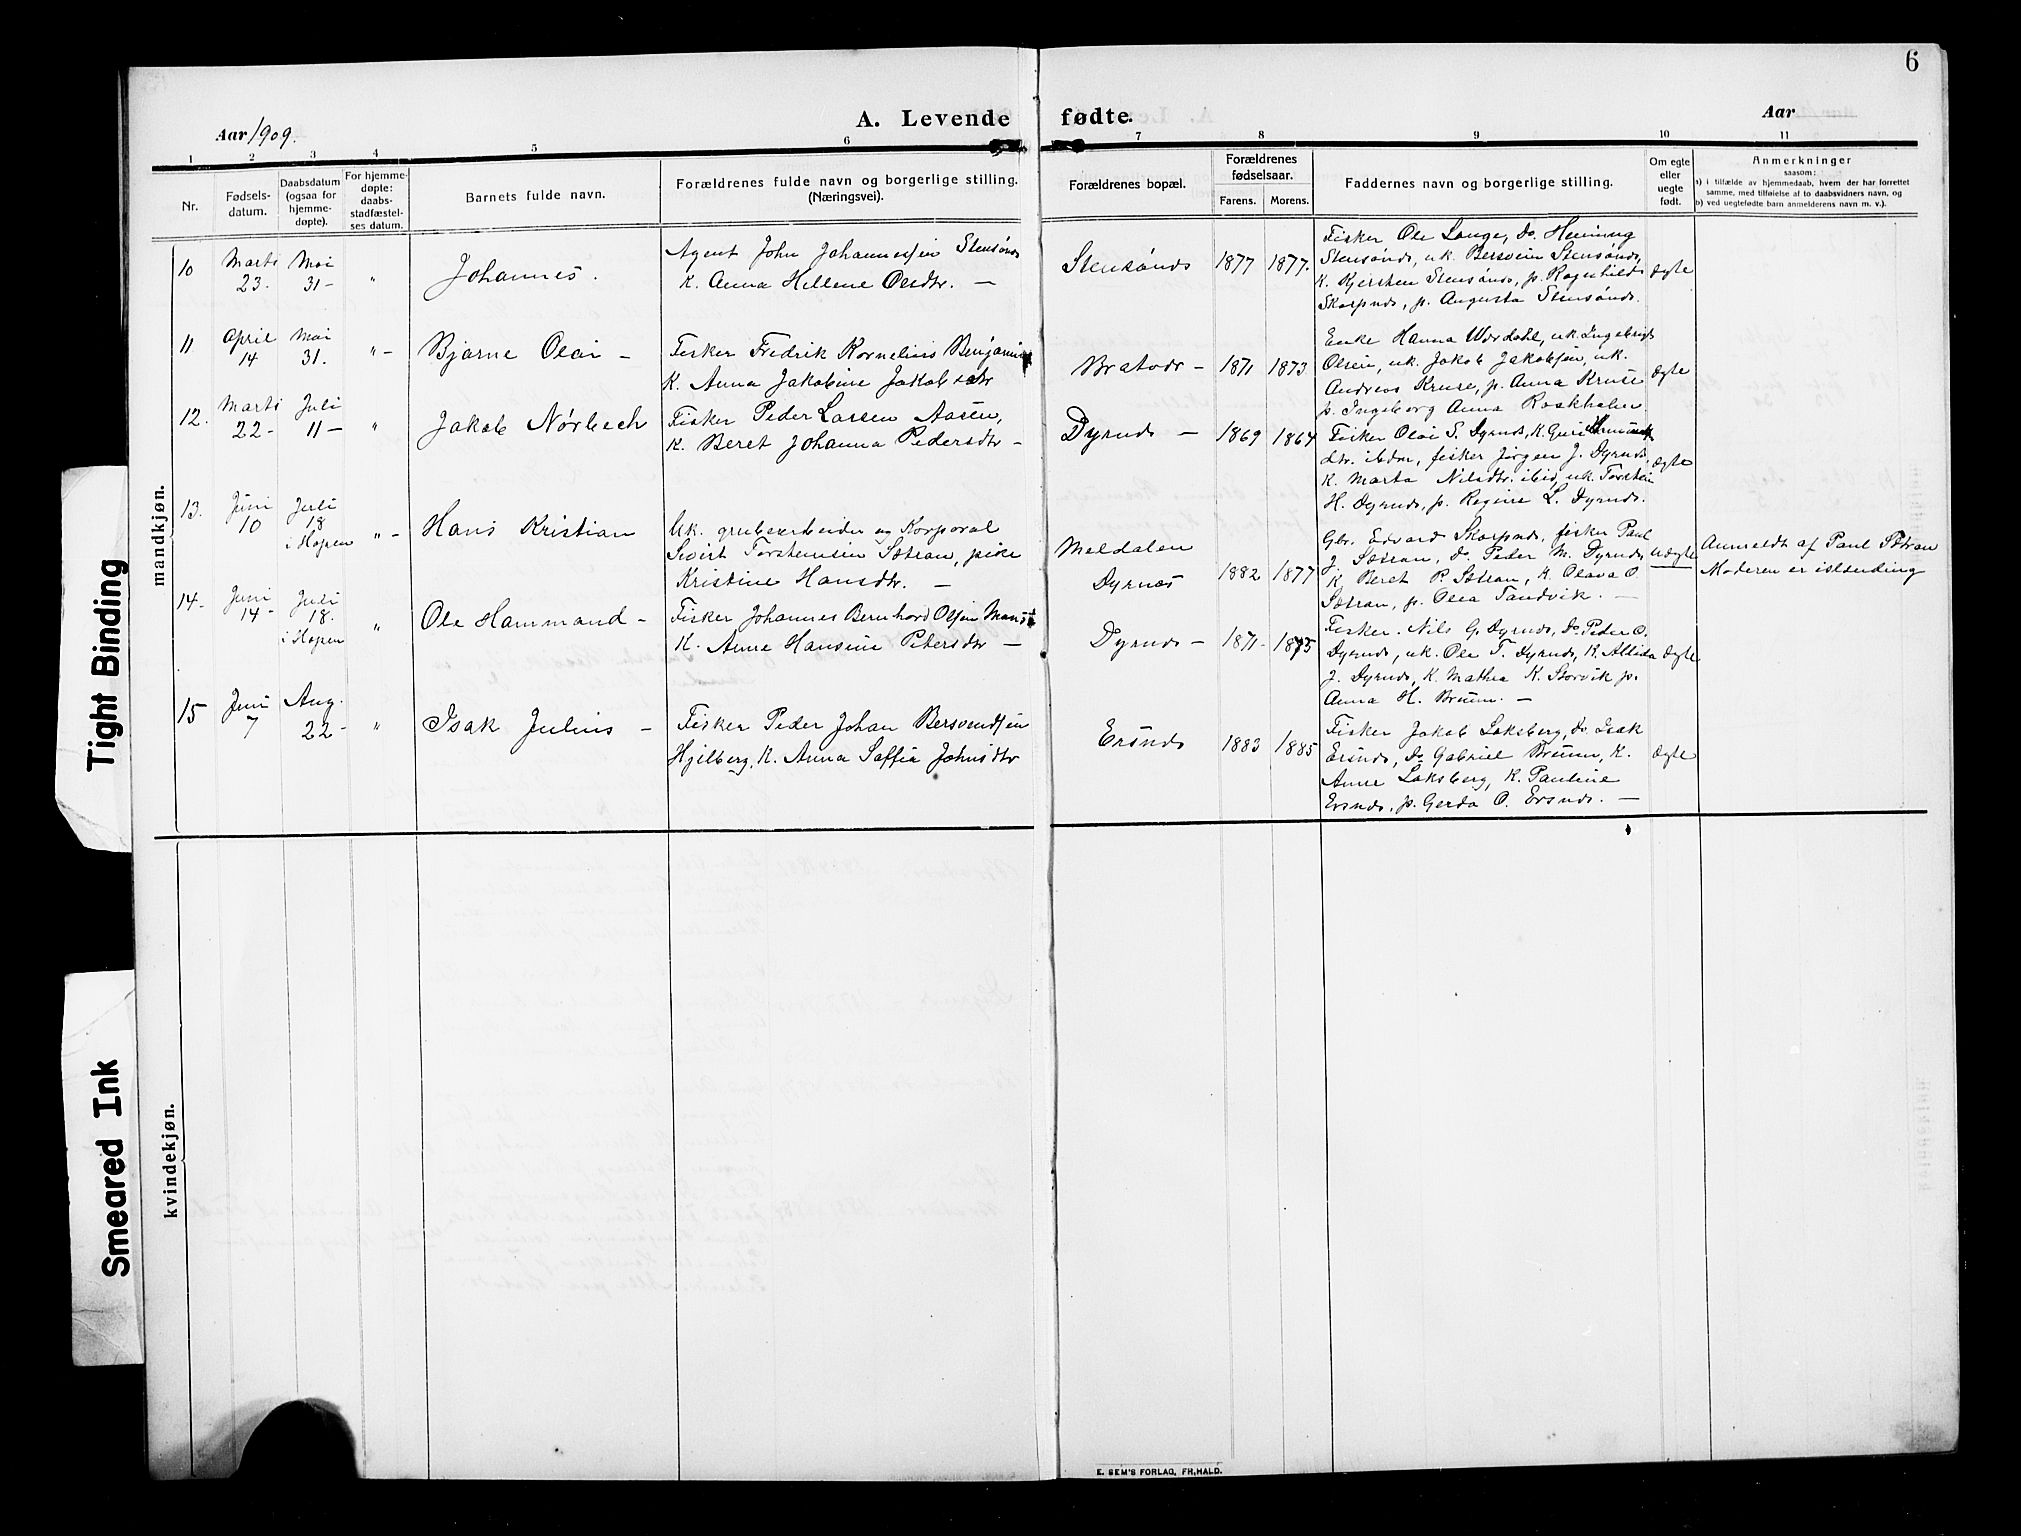 6
Aar 1909.
A. Levende fødte.
Aar
1 2 3 4 5 6 7 8 9 10 11
Nr.
Fødsels-
datum.
Daabsdatum
(ogsaa for
hjemme-
døpte).
For hjemme-
døpte:
daabs-
stadfæstel-
ses datum.
Barnets fulde navn.
Forældrenes fulde navn og borgerlige stilling.
(Næringsvei).
Forældrenes bopæl.
Forældrenes
fødselsaar.
Farens. Morens.
Faddernes navn og borgerlige stilling.
Om egte
eller
uegte
født.
Anmerkninger
saasom:
a) i tilfælde av hjemmedaab, hvem der har forrettet
samme, med tilføielse af to daabsvidners navn, og
b) ved uegtefødte barn anmelderens navn m. v.).
mandkjøn.
10
Marts
23.
Mai
31 -
"
Johannes.
Agent John Johannessen Stensønds
K. Anna Hellene Olsdtr. —
Stensønds
1877 1877.
Fisker Ole Lange, do. Henning
Stensønds, uk. Bersvein Stensønds,
K. Kjersten Stensønds, p. Ragnhild
Skarpnds, p. Augusta Stensønds.
Ægte
11
April
14
Mai
31.
" -
Bjarne Olai -
Fisker Fredrik Kornelius Benjamin
K. Anna Jakobine Jakobsdtr
Bratvær -
1871 1873
Enke Hanna Werdahl, uk. Ingebrigt
Olsen, uk. Jakob Jakobsen, uk.
Andreas Kruse, p. Anna Kruse
p. Ingeborg Anna Roskhalm
Ægte
12.
Marts
22 -
Juli
11 -
"
Jakob Nørbech
Fisker Peder Larsen Aasen,
K. Beret Johanna Pedersdtr -
Dyrnds -
1869 1864
Fisker Olai S. Dyrnds, K. Guri
dtr. ibdm, fisker Jørgen J. Dyrnds,
K. Marta Nilsdtr. ibid, uk. Torsten
H. Dyrnds, p. Regine L. Dyrnds.
Ægte
13.
Juni
10
Juli
18
i Hopen
" -
Hans Kristian
Uk. grubearbeider og Korporal
Sivert Torstensen Sætran, pike
Kristine Hansdtr. —
Meldalen
Dyrnæs
1882 1877
Gbr. Edvard Skarpnds, fisker Paul
J. Sætran, do. Peder M. Dyrnds
K. Beret P. Sætran, K. Olava O.
Sætran, p. Olea Tandvik. —
Uægte
Anmeldt af Paul Sætran
Moderen er islænding
14 -
Juni
14 -
Juli
18.
i Hopen
"
Ole Hammand -
Fisker Johannes Bernhard Olsen
K. Anne Hansine Petersdtr —
Dyrnds -
1871 - 1875
Fisker. Nils G. Dyrnds, Do Peder O.
Dyrnds, uk. Ole T. Dyrnds, K. Altida
J. Dyrnds, K. Mathea K. Storvik p.
Anna H. Bruun. —
Ægte
15
Juni
7
Aug.
22 -
"
Isak Julius -
Fisker Peder Johan Bersvendsen
Hjelberg, K. Anna Soffia Johnsdtr
Ersnds
1883 1885
Fisker Jakob Laksberg, do. Isak
Ersnds, Do Gabriel Bruun, K.
Anne Laksberg, K. Pauline
Ersnds, p. Gerda O. Ersnds. —
Ægte
kvindekjøn.
Tight Binding
Smeared Ink
E. SEM'S FORLAG, FR.HALD.